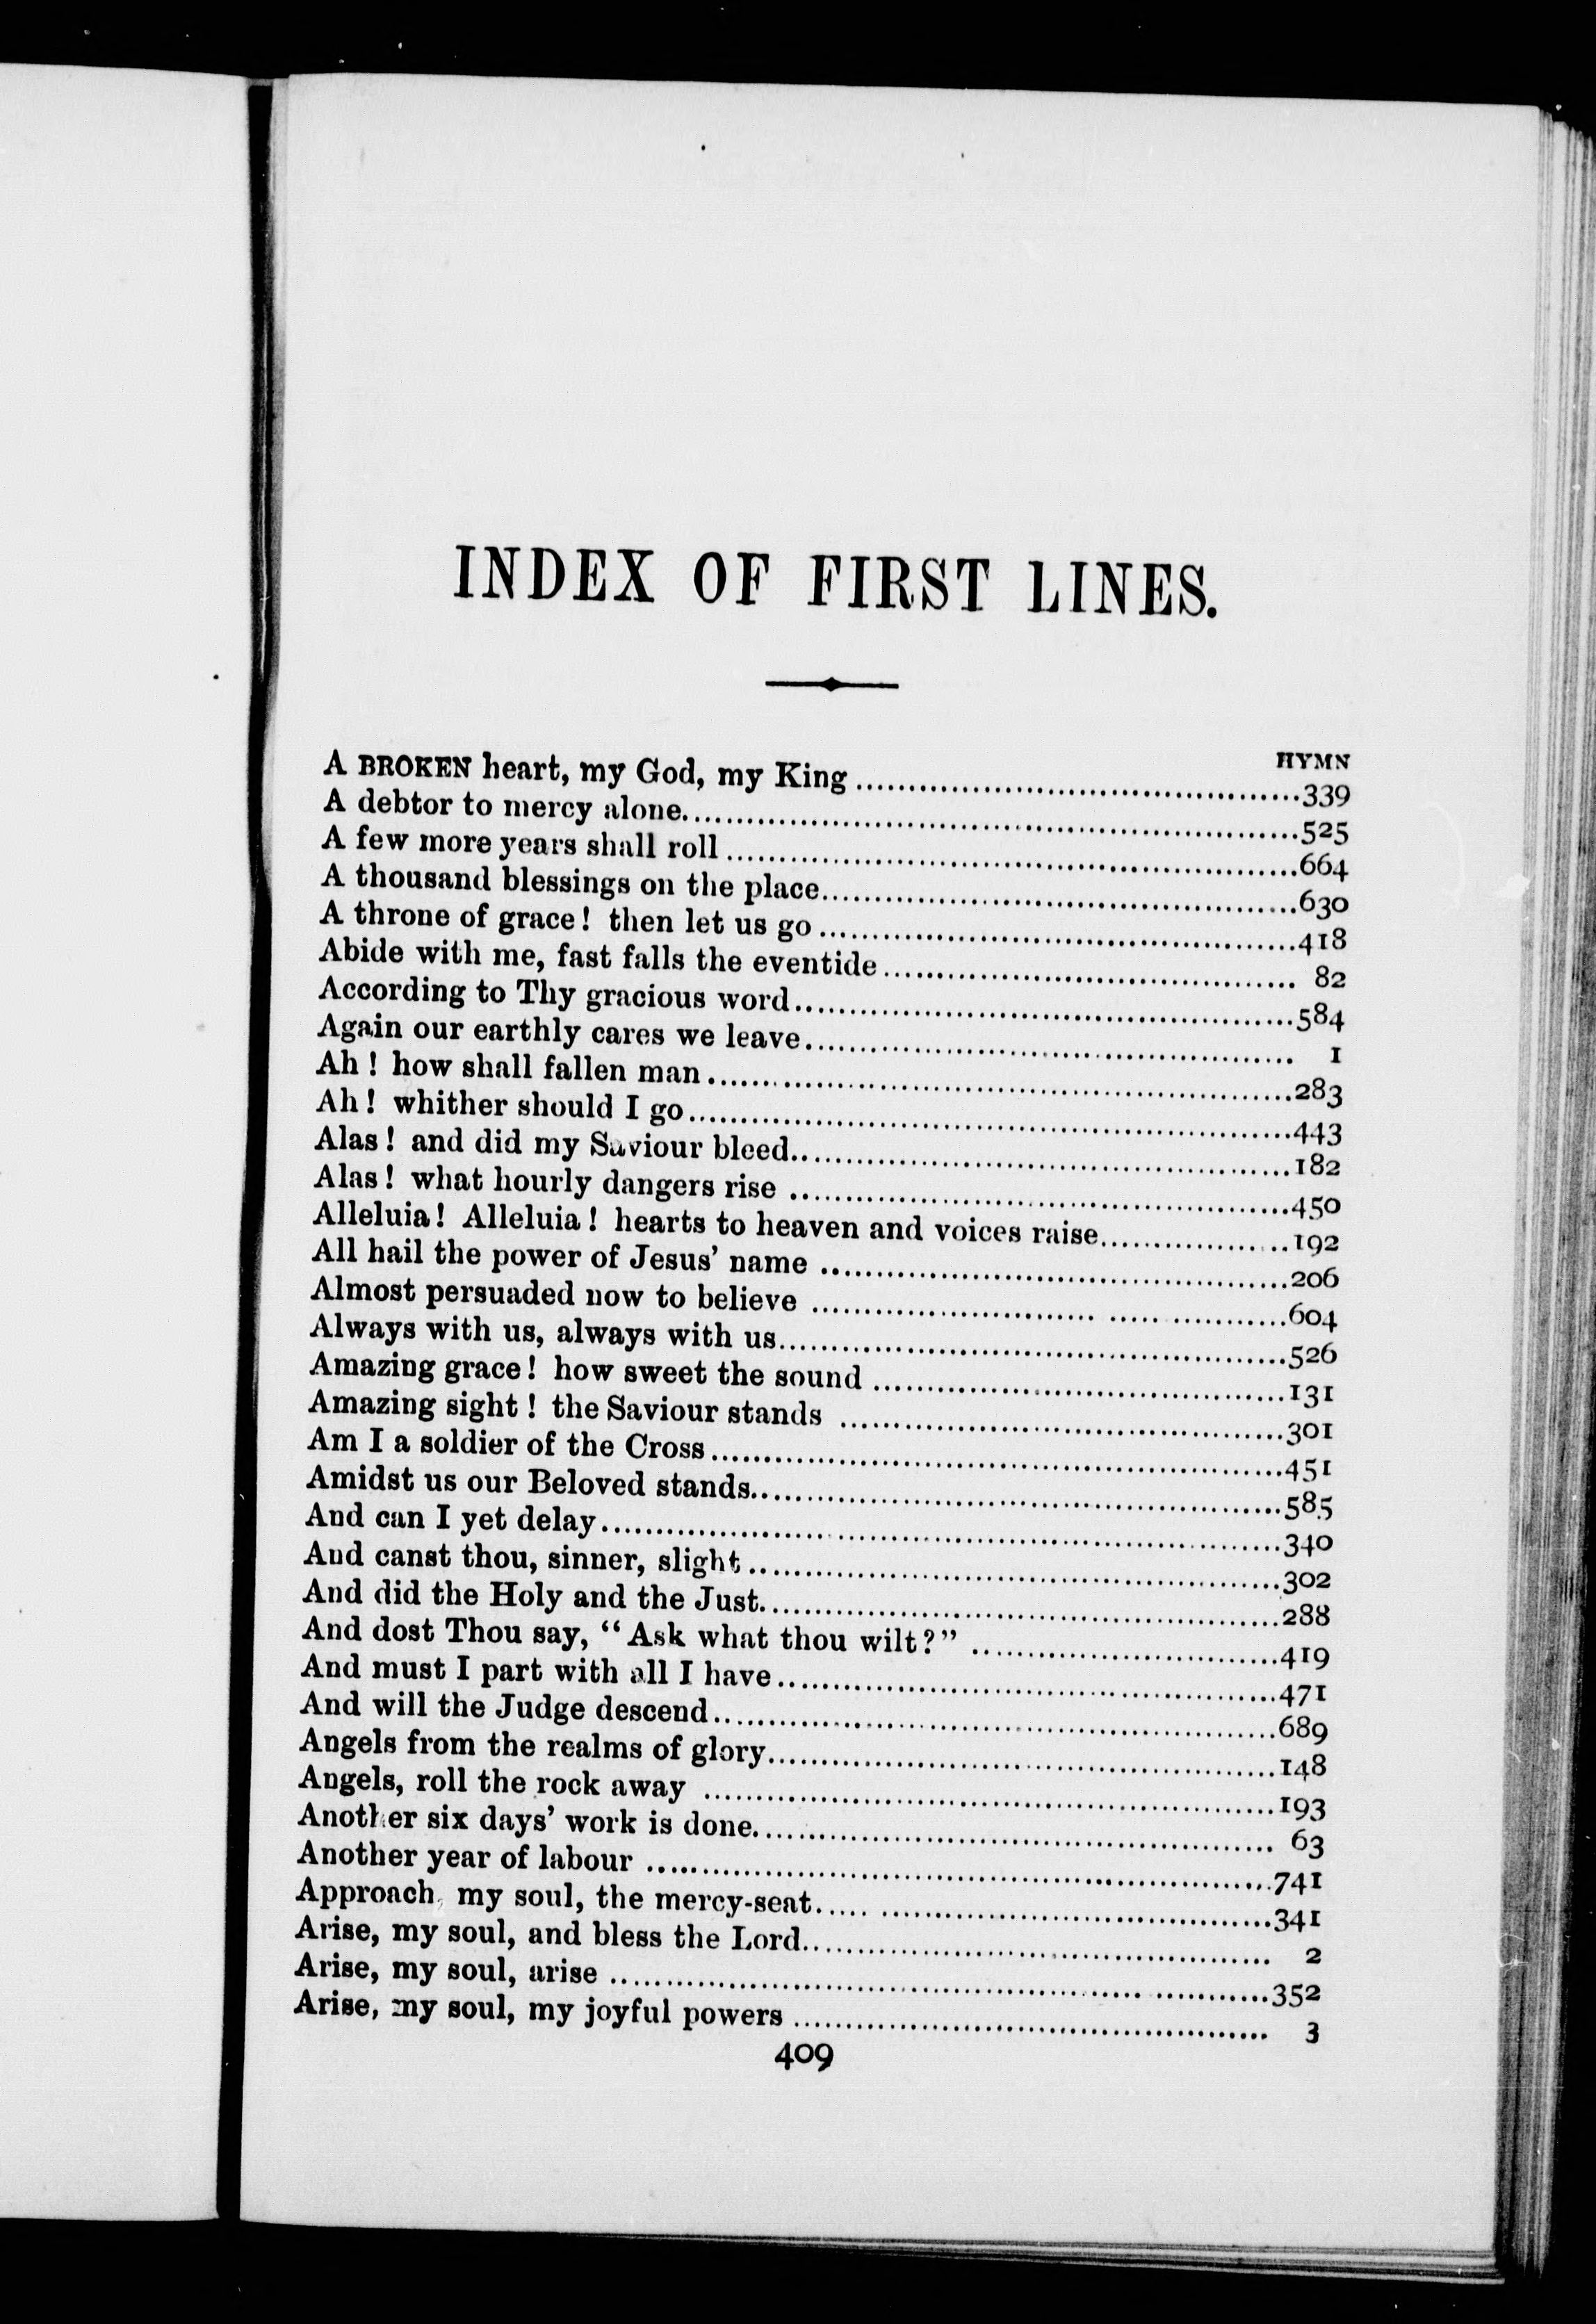 INDEX OF FIRST LINES.
HYMN
A BROKEN heart, my God, my King ........ 339
A debtor to mercy alone ........ 525
A few more years shall roll ........ 664
A thousand blessings on the place ........ 630
A throne of grace! then let us go ........ 418
Abide with me, fast falls the eventide ........ 82
According to Thy gracious word ........ 584
Again our earthly cares we leave ........ 1
Ah! how shall fallen man ........ 283
Ah! whither should I go ........ 443
Alas! and did my Saviour bleed ........ 182
Alas! what hourly dangers rise ........ 450
Alleluia! Alleluia! hearts to heaven and voices raise ........ 192
All hail the power of Jesus' name ........ 206
Almost persuaded now to believe ........ 604
Always with us, always with us ........ 526
Amazing grace! how sweet the sound ........ 131
Amazing sight! the Saviour stands ........ 301
Am I a soldier of the Cross ........ 451
Amidst us our Beloved stands ........ 585
And can I yet delay ........ 340
And canst thou, sinner, slight ........ 302
And did the Holy and the Just ........ 288
And dost Thou say, "Ask what thou wilt?" ........ 419
And must I part with all I have ........ 471
And will the Judge descend ........ 689
Angels from the realms of glory ........ 148
Angels, roll the rock away ........ 193
Another six days' work is done ........ 63
Another year of labour ........ 741
Approach, my soul, the mercy-seat ........ 341
Arise, my soul, and bless the Lord ........ 2
Arise, my soul, arise ........ 352
Arise, my soul, my joyful powers ........ 3
409